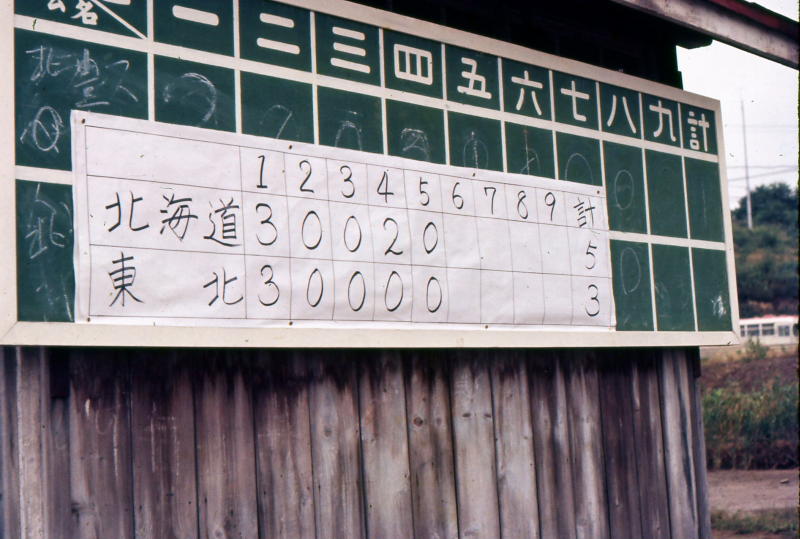 一 二 三 四 五 六 七 八 九 計
1 2 3 4 5 6 7 8 9 計
北海道 3 0 0 2 0 5
東北 3 0 0 0 0 3